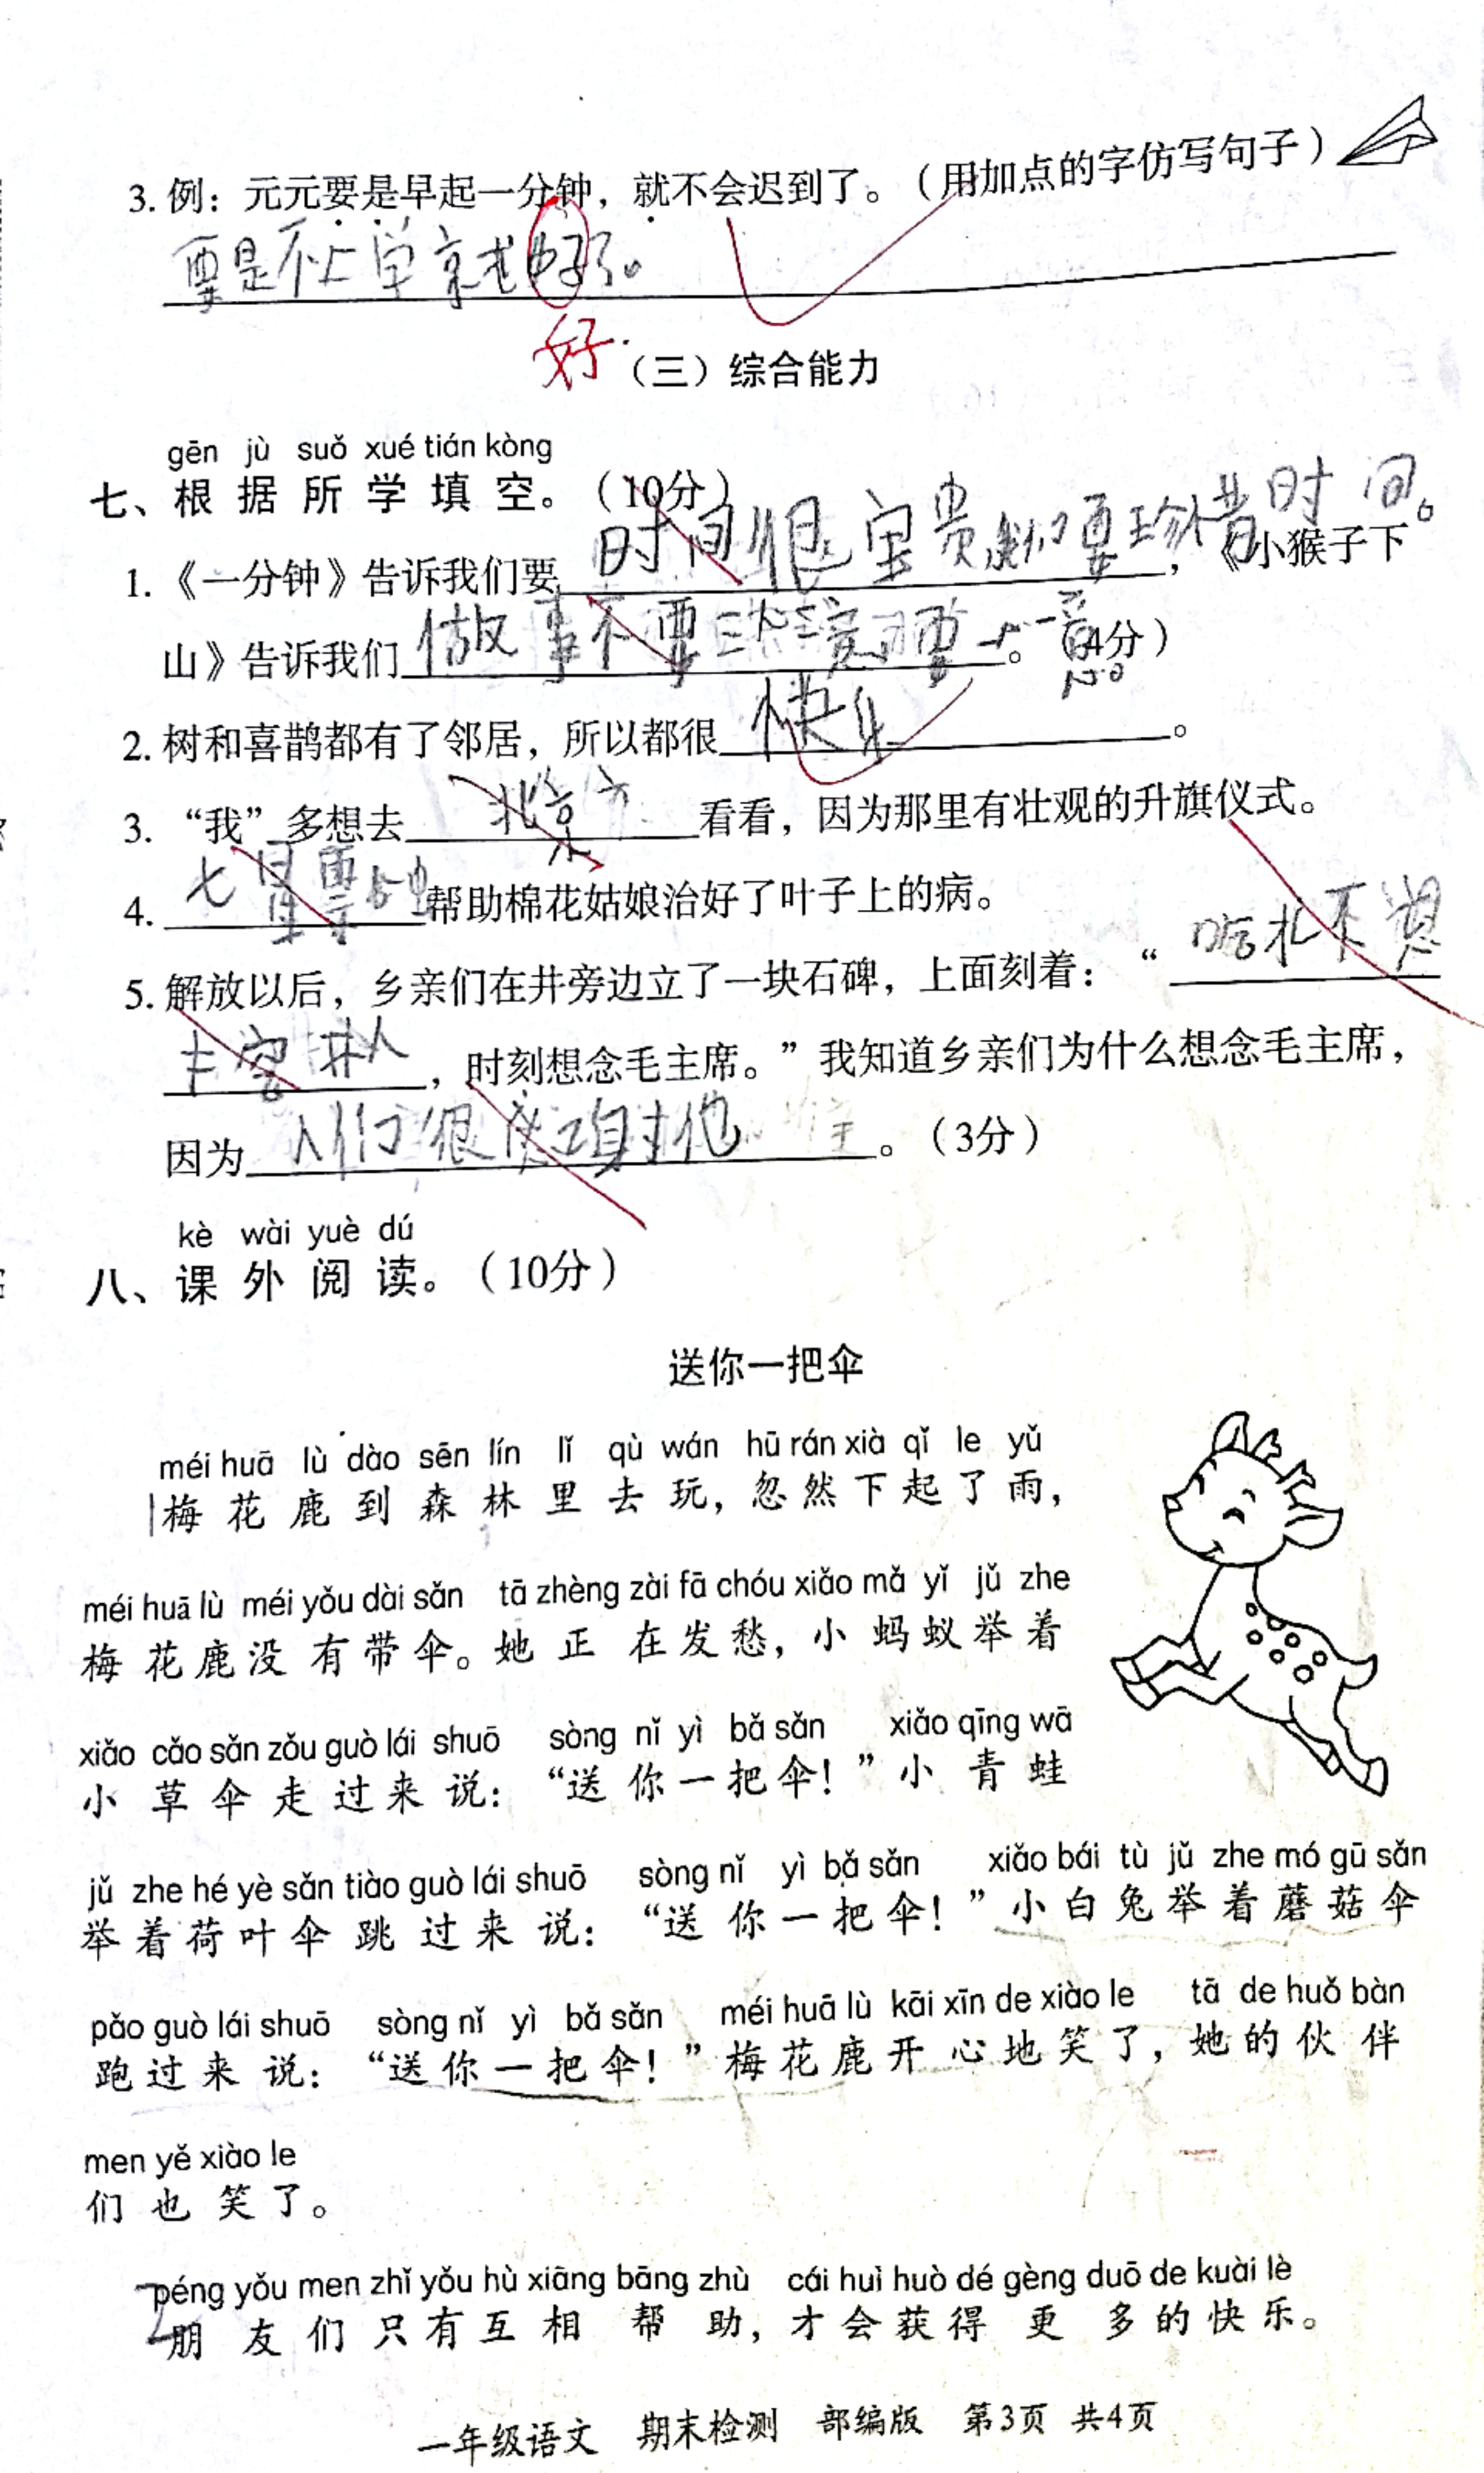 3. 例：元元要是早起一分钟，就不会迟到了。（用加点的字仿写句子）
要是不上学就好了。
好
（三）综合能力
gēn jù suǒ xué tián kòng
七、根据所学填空。（10分）
时间很宝贵我们要珍惜时间。
1.《一分钟》告诉我们要，《小猴子下
山》告诉我们做事不要三心二意要一心一意。。（4分）
2. 树和喜鹊都有了邻居，所以都很快乐。
3. “我”多想去北京看看，因为那里有壮观的升旗仪式。
4. 七星瓢虫帮助棉花姑娘治好了叶子上的病。
5. 解放以后，乡亲们在井旁边立了一块石碑，上面刻着：“吃水不忘
井人，时刻想念毛主席。”我知道乡亲们为什么想念毛主席，
因为人们很他。（3分）
kè wài yuè dú
八、课外阅读。（10分）
送你一把伞
méi huā lù dào sēn lín lǐ qù wán hū rán xià qǐ le yǔ
梅花鹿到森林里去玩，忽然下起了雨，
méi huā lù méi yǒu dài sǎn tā zhèng zài fā chóu xiǎo mǎ yǐ jǔ zhe
梅花鹿没有带伞。她正在发愁，小蚂蚁举着
xiǎo cǎo sǎn zǒu guò lái shuō sòng nǐ yì bǎ sǎn xiǎo qīng wā
小草伞走过来说：“送你一把伞！”小青蛙
jǔ zhe hé yè sǎn tiào guò lái shuō sòng nǐ yì bǎ sǎn xiǎo bái tù jǔ zhe mó gū sǎn
举着荷叶伞跳过来说：“送你一把伞！”小白兔举着蘑菇伞
pǎo guò lái shuō sòng nǐ yì bǎ sǎn méi huā lù kāi xīn de xiào le tā de huǒ bàn
跑过来说：“送你一把伞！”梅花鹿开心地笑了，她的伙伴
men yě xiào le
们也笑了。
péng yǒu men zhǐ yǒu hù xiāng bāng zhù cái huì huò dé gèng duō de kuài lè
朋友们只有互相帮助，才会获得更多的快乐。
一年级语文 期末检测 部编版 第3页 共4页